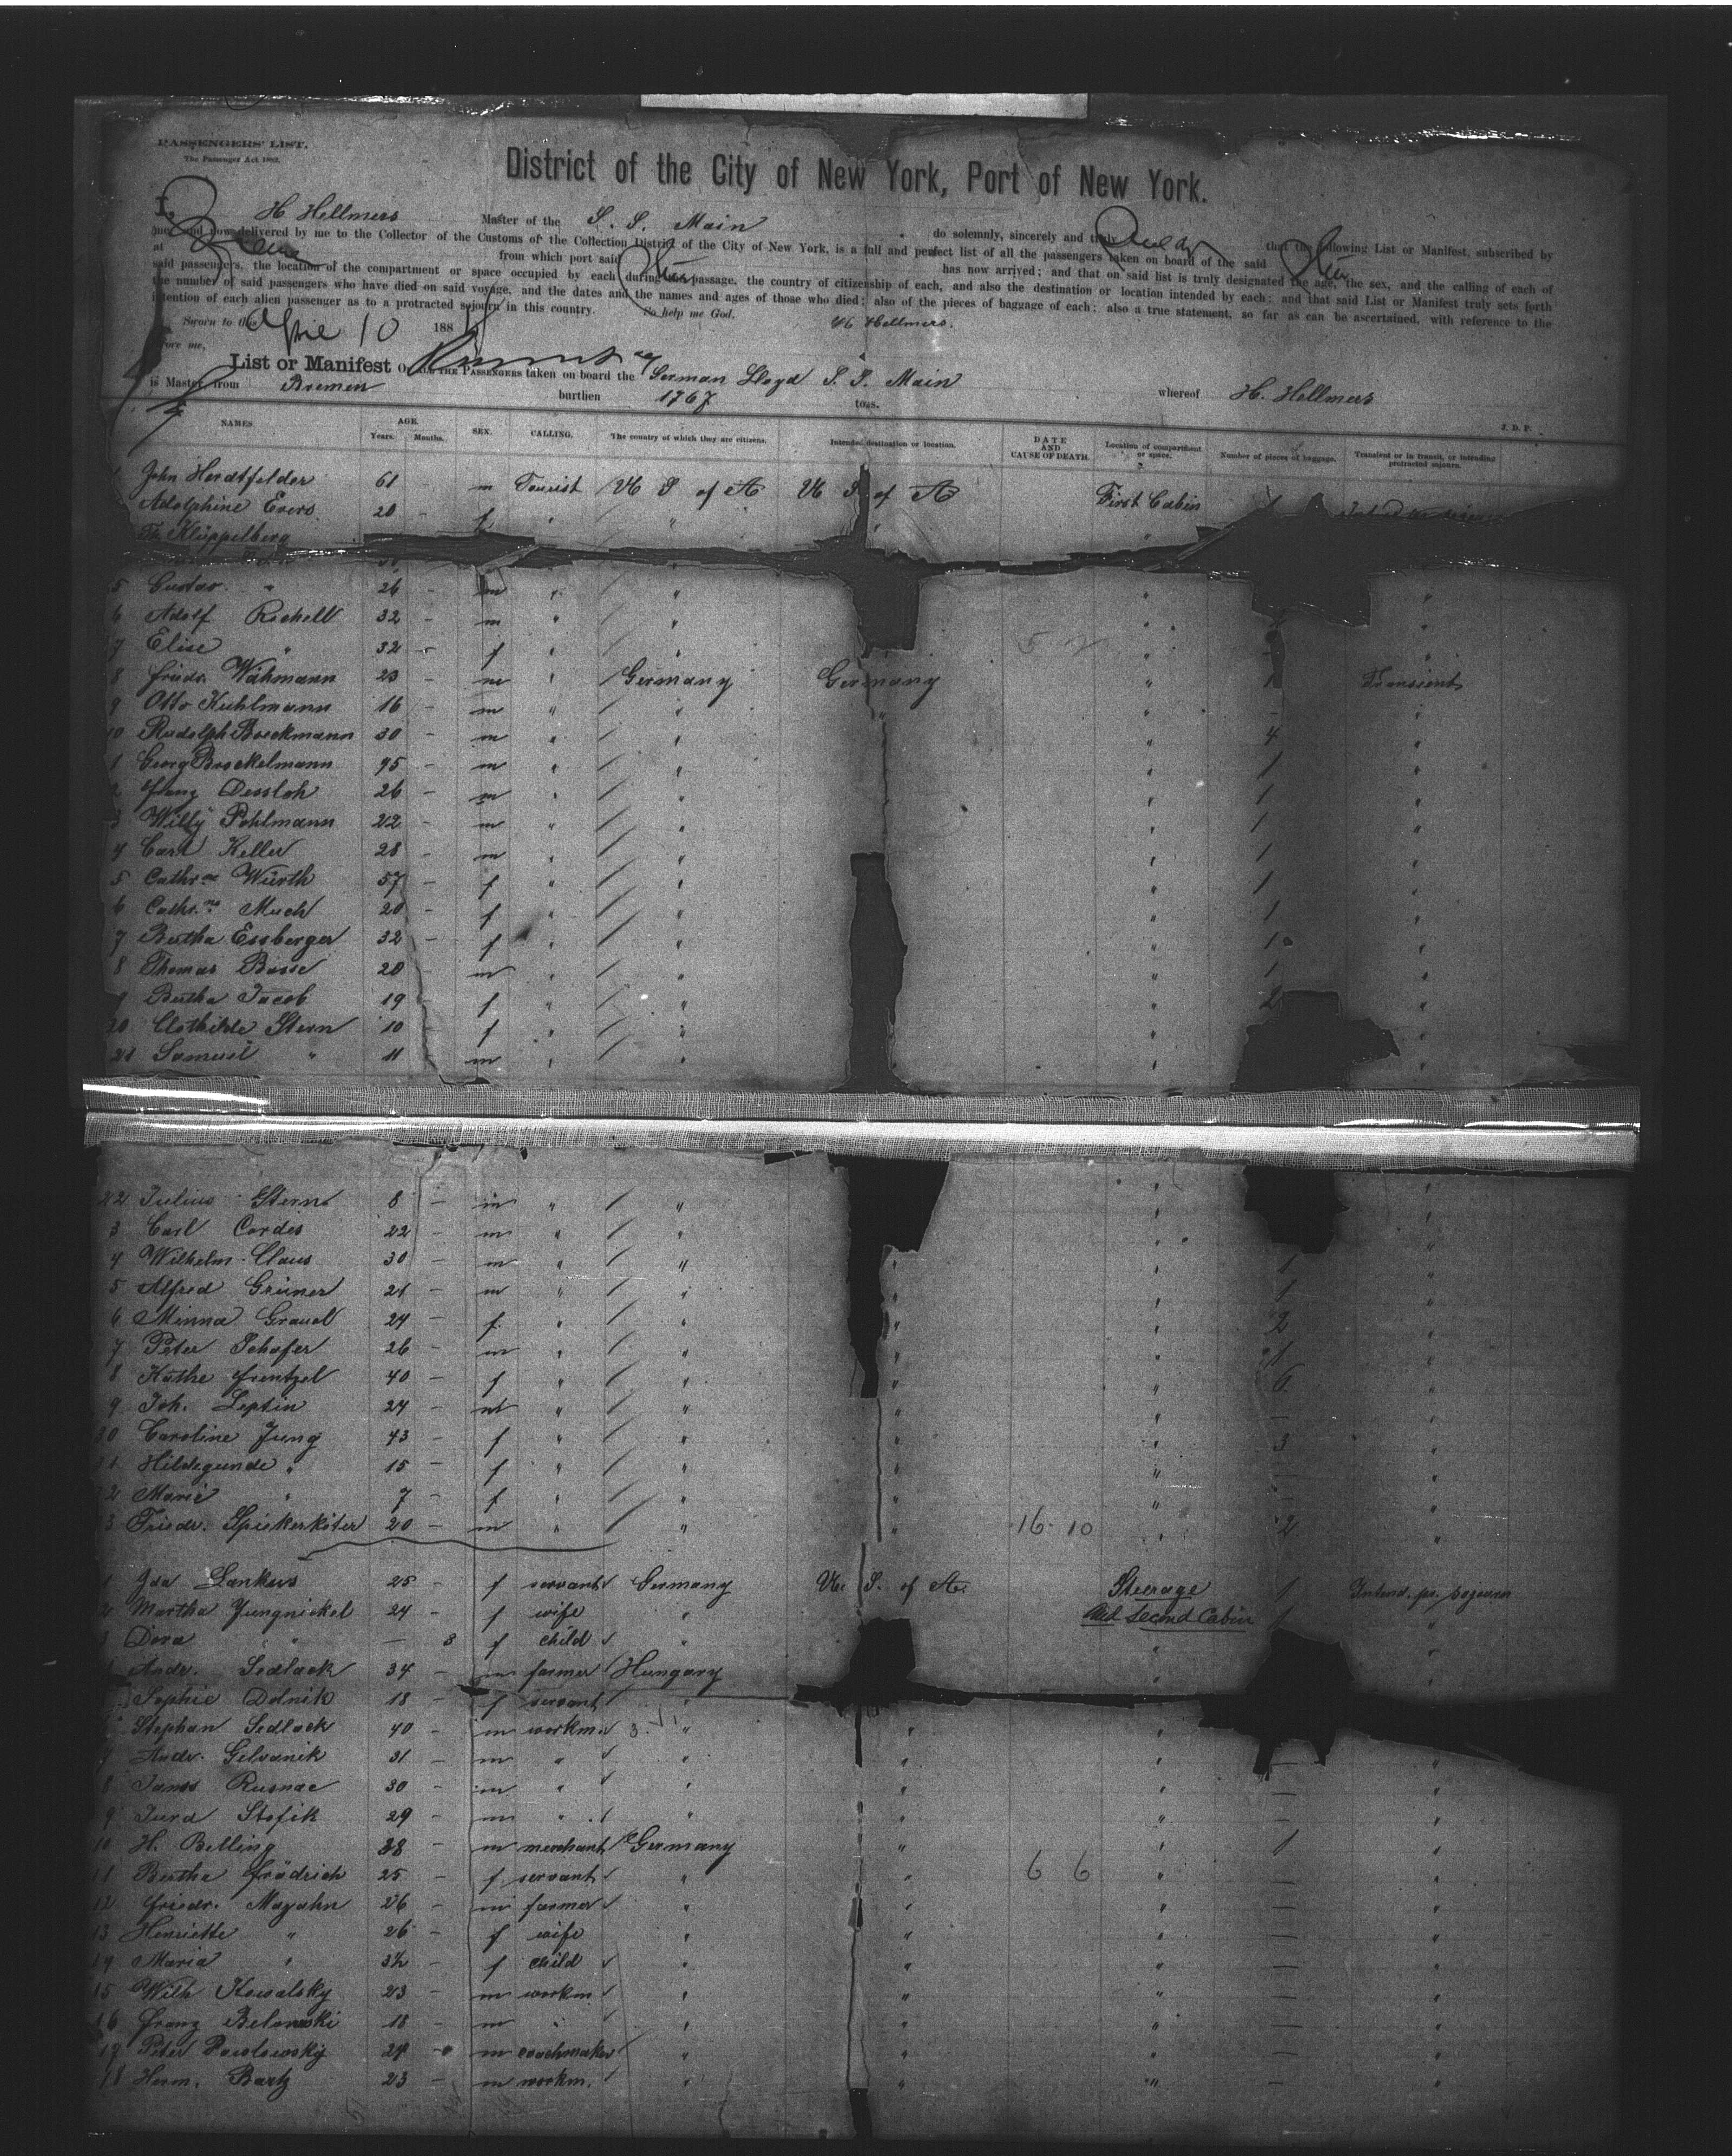 PASSENGERS' LIST.
The Passenger Act 1882.
District of the City of New York, Port of New York.
I, H Hellmers Master of the S. S. Main do solemnly, sincerely and truly that the following List or Manifest, subscribed by
me, and now delivered by me to the Collector of the Customs of the Collection District of the City of New York, is a full and perfect list of all the passengers taken on board of the said
at from which port said has now arrived; and that on said list is truly designated the age, the sex, and the calling of each of
said passengers, the location of the compartment or space occupied by each during the passage, the country of citizenship of each, and also the destination or location intended by each; and that said List or Manifest truly sets forth
the number of said passengers who have died on said voyage, and the dates and the names and ages of those who died; also of the pieces of baggage of each; also a true statement, so far as can be ascertained, with reference to the
intention of each alien passenger as to a protracted sojourn in this country. So help me God.
Sworn to this 10 188 Hellmers.
fore me,
List or Manifest OF ALL THE PASSENGERS taken on board the German Lloyd S. S. Main
is Master, from Bremen burthen 1767 tons. whereof H. Hellmers
J. D. P.
NAMES AGE. Years. Months. SEX. CALLING. The country of which they are citizens. Intended destination or location. DATE AND CAUSE OF DEATH. Location of compartment or space. Number of pieces of baggage. Transient or in transit, or intending protracted sojourn.
John Herdtfelder 61 m Tourist U S of A U S of A First Cabin 1
Adolphine Evers 20 - f " "
Klüppelberg
5 Gustav " 26 - m " " "
6 Adolf Richell 32 - m " " "
7 Elise " 32 - f " "
8 Friedr. Wähmann 23 m " Germany Germany " 1 Transient
9 Otto Kuhlmann 16 - m " " " - "
10 Rudolph Boeckmann 30 - m " " " 4 "
1 Georg Brockelmann 45 - m " " " 1 "
2 Franz Dessloh 26 - m " " " 1 "
3 Willy Pohlmann 22 - m " " " 1 "
4 Carl Keller 28 - m " " " 1 "
5 Cathr.ne Würth 57 - f " " " 1 "
6 Cathr.ne Much 20 - f " " " 1 "
7 Bertha Essberger 32 - f " " " 1 "
8 Thomas Basse 20 - m " " " 1 "
9 Bertha Jacob 19 - f " " " 2 "
20 Clothilde Stern 10 - f " " " "
21 Samuel " 11 m " " " "
22 Julius Stern 8 - m " " " "
3 Carl Cordes 22 - m " " " "
4 Wilhelm Claus 30 - m " " " " 1 "
5 Alfred Grüner 21 - m " " " " 1 "
6 Minna Grauel 24 - f. " " " " 2 "
7 Peter Schafer 26 - m " " " " 1 "
8 Käthe Frentzel 40 - f " " " " 6 "
9 Joh. Leptin 24 - m " " " " - "
30 Caroline Jung 43 - f " " " " 3 "
31 Hildegunde " 15 - f " " " " - "
2 Marie " 7 - f " " " " - "
3 Friedr. Spiekerköter 20 - m " " " 16.10 " 2 "
1 Ida Lankers 25 - f servant Germany U. S. of A. Steerage 1 Intend. pr. sojourn
2 Martha Jungnickel 24 - f wife " and second Cabin "
3 Dora " - 8 f child " " "
4 Andr. Sedlack 34 - m farmer Hungary " "
Sophie Dolnik 18 - f servant "
Stephan Sedlack 40 - m workm. " " "
7 Andr. Gelvanik 31 - m " " " " - "
8 Janos Rusnac 30 - m " " " " - "
9 Jurd Stofik 29 - m " " " " - "
10 H. Belling 38 - m merchant Germany " " 1 "
11 Bertha Frädrich 25 - f servant " " 6 6 " - "
12 Friedr. Magahn 26 - m farmer " " " - "
13 Henriette " 26 - f wife " " " - "
14 Maria " 3½ - f child " " " - "
15 Wilh Kowalsky 23 - m workm. " " " - "
16 Franz Belanski 18 - m " " " " - "
17 Peter Pawlowsky 24 - m coachmaker " " " - "
18 Herm. Bartz 23 - m workm. " " " - "